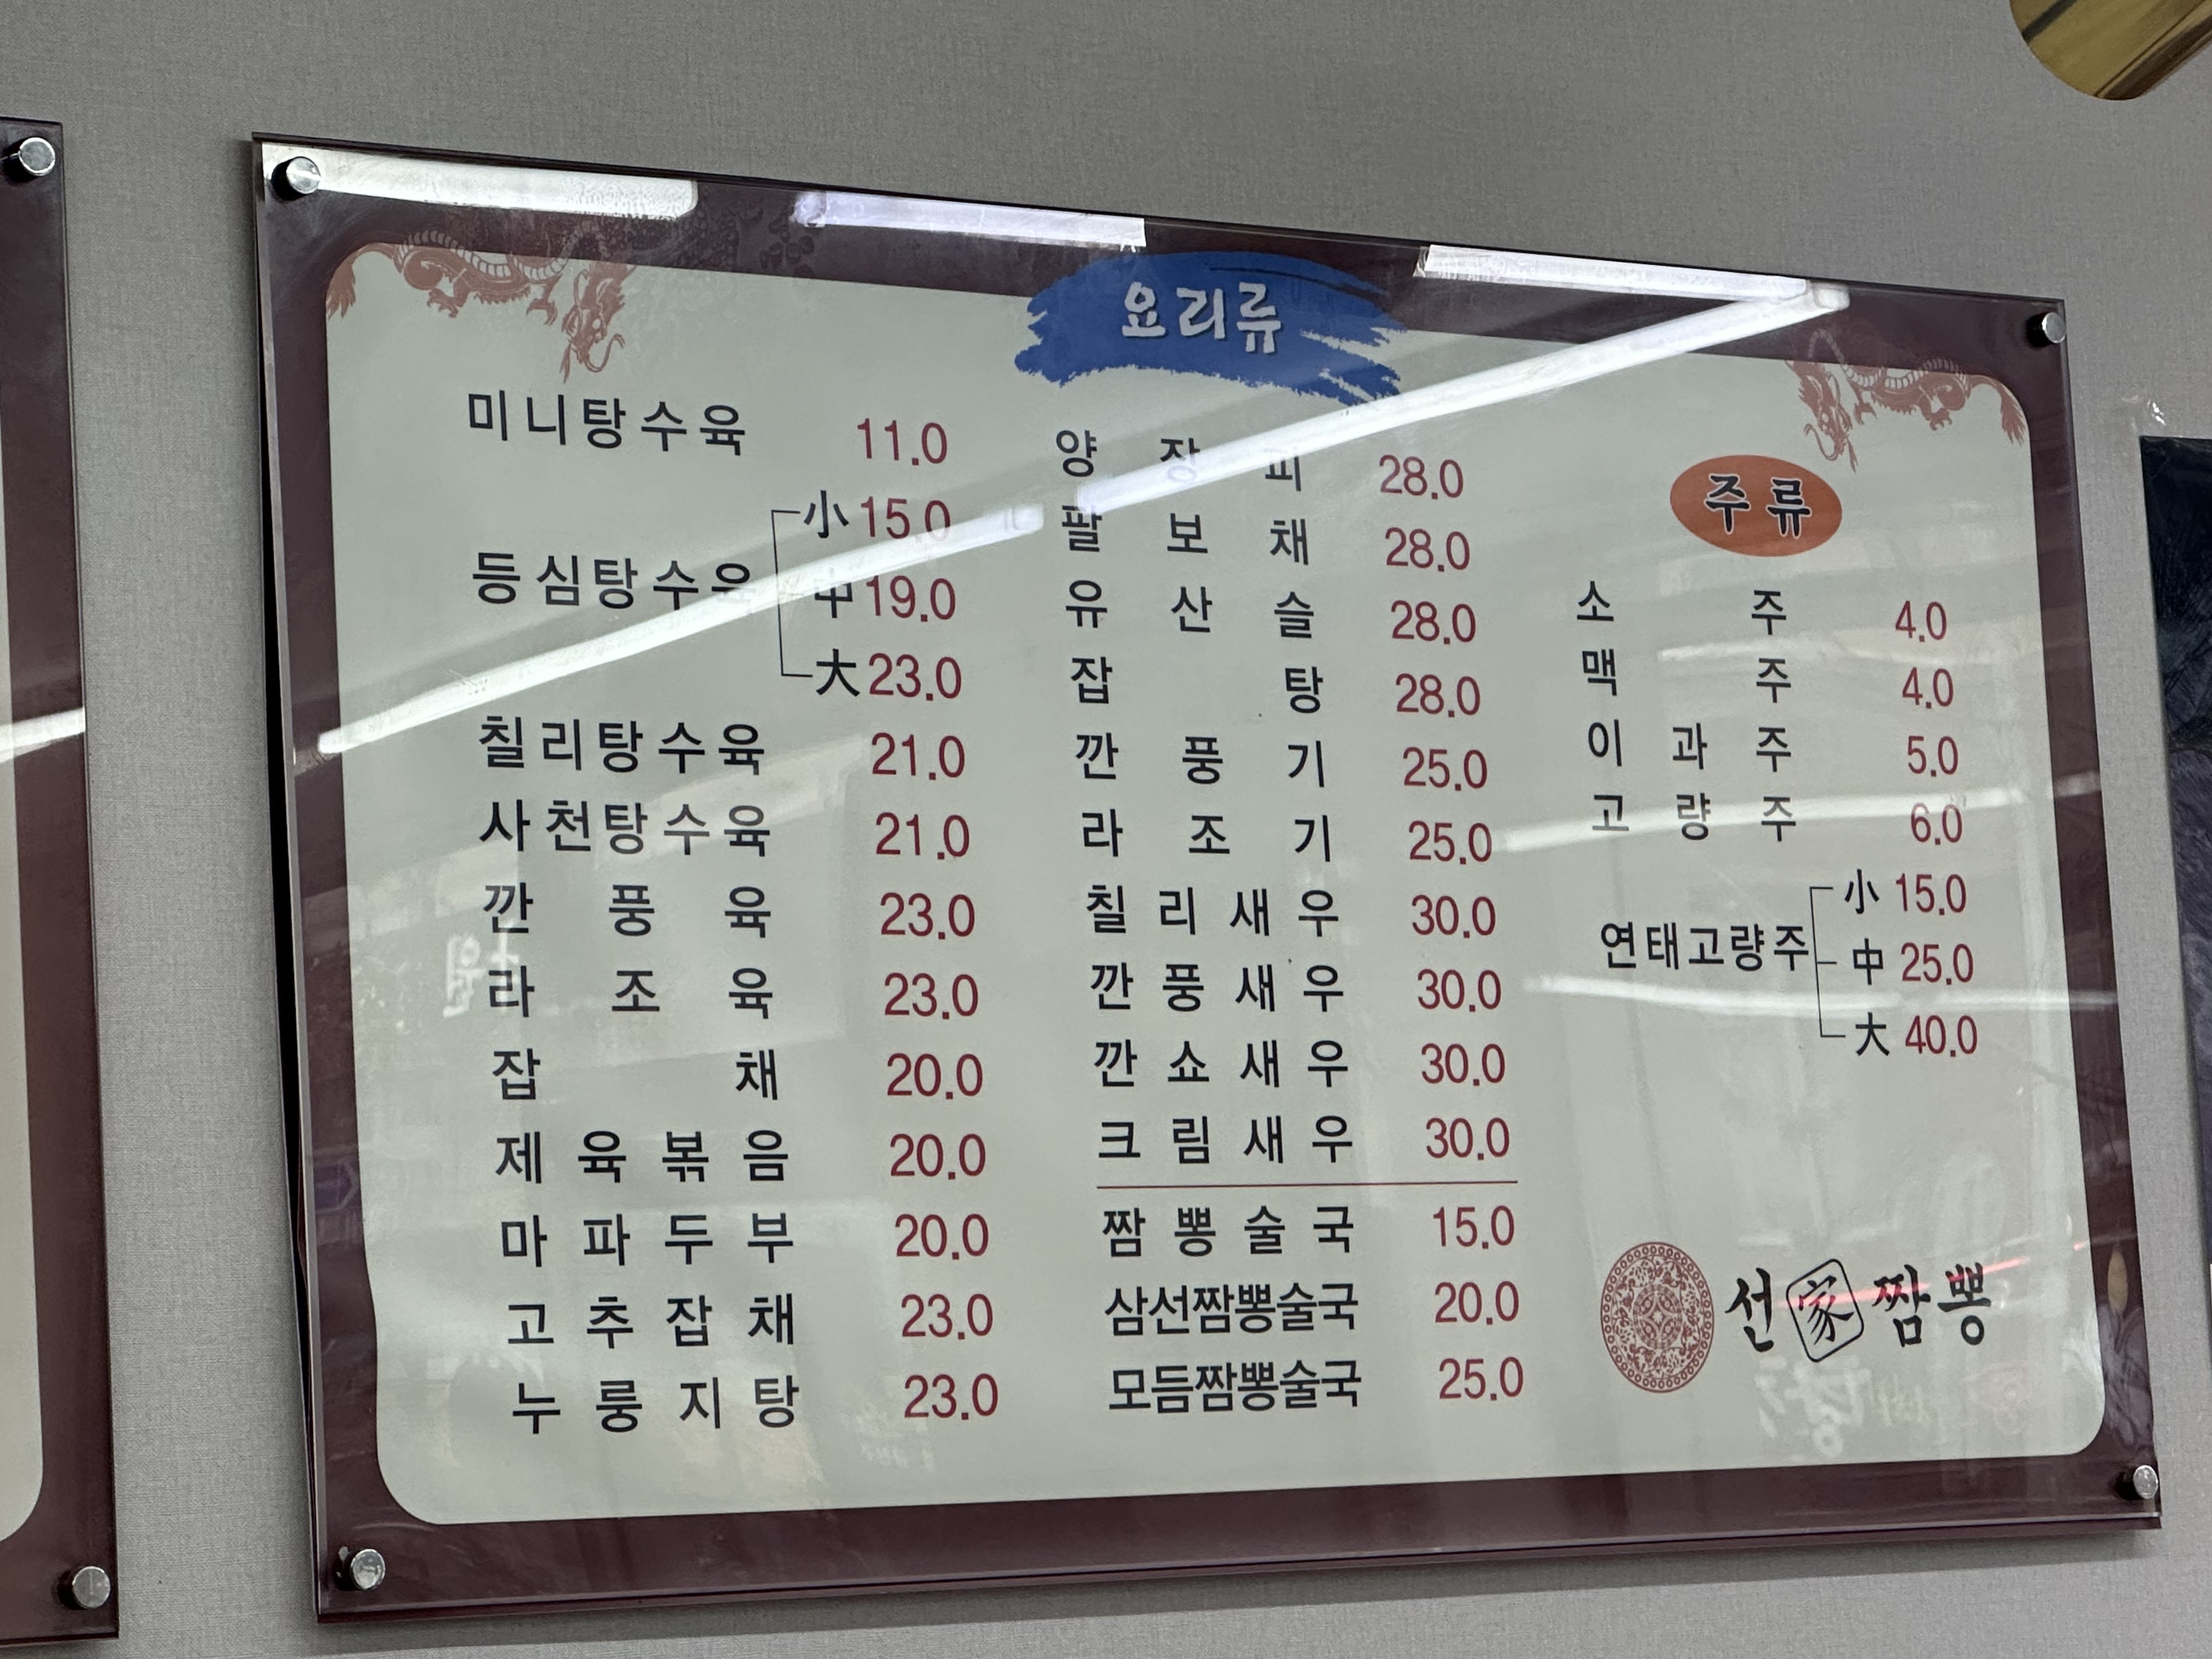 요리류
미니탕수육 11.0
등심탕수육
小 15.0
中 19.0
大 23.0
칠리탕수육 21.0
사천탕수육 21.0
깐풍육 23.0
라조육 23.0
잡채 20.0
제육볶음 20.0
마파두부 20.0
고추잡채 23.0
누룽지탕 23.0
양장피 28.0
팔보채 28.0
유산슬 28.0
잡탕 28.0
깐풍기 25.0
라조기 25.0
칠리새우 30.0
깐풍새우 30.0
깐쇼새우 30.0
크림새우 30.0
짬뽕술국 15.0
삼선짬뽕술국 20.0
모듬짬뽕술국 25.0
주류
소주 4.0
맥주 4.0
이과주 5.0
고량주 6.0
연태고량주
小 15.0
中 25.0
大 40.0
선家짬뽕